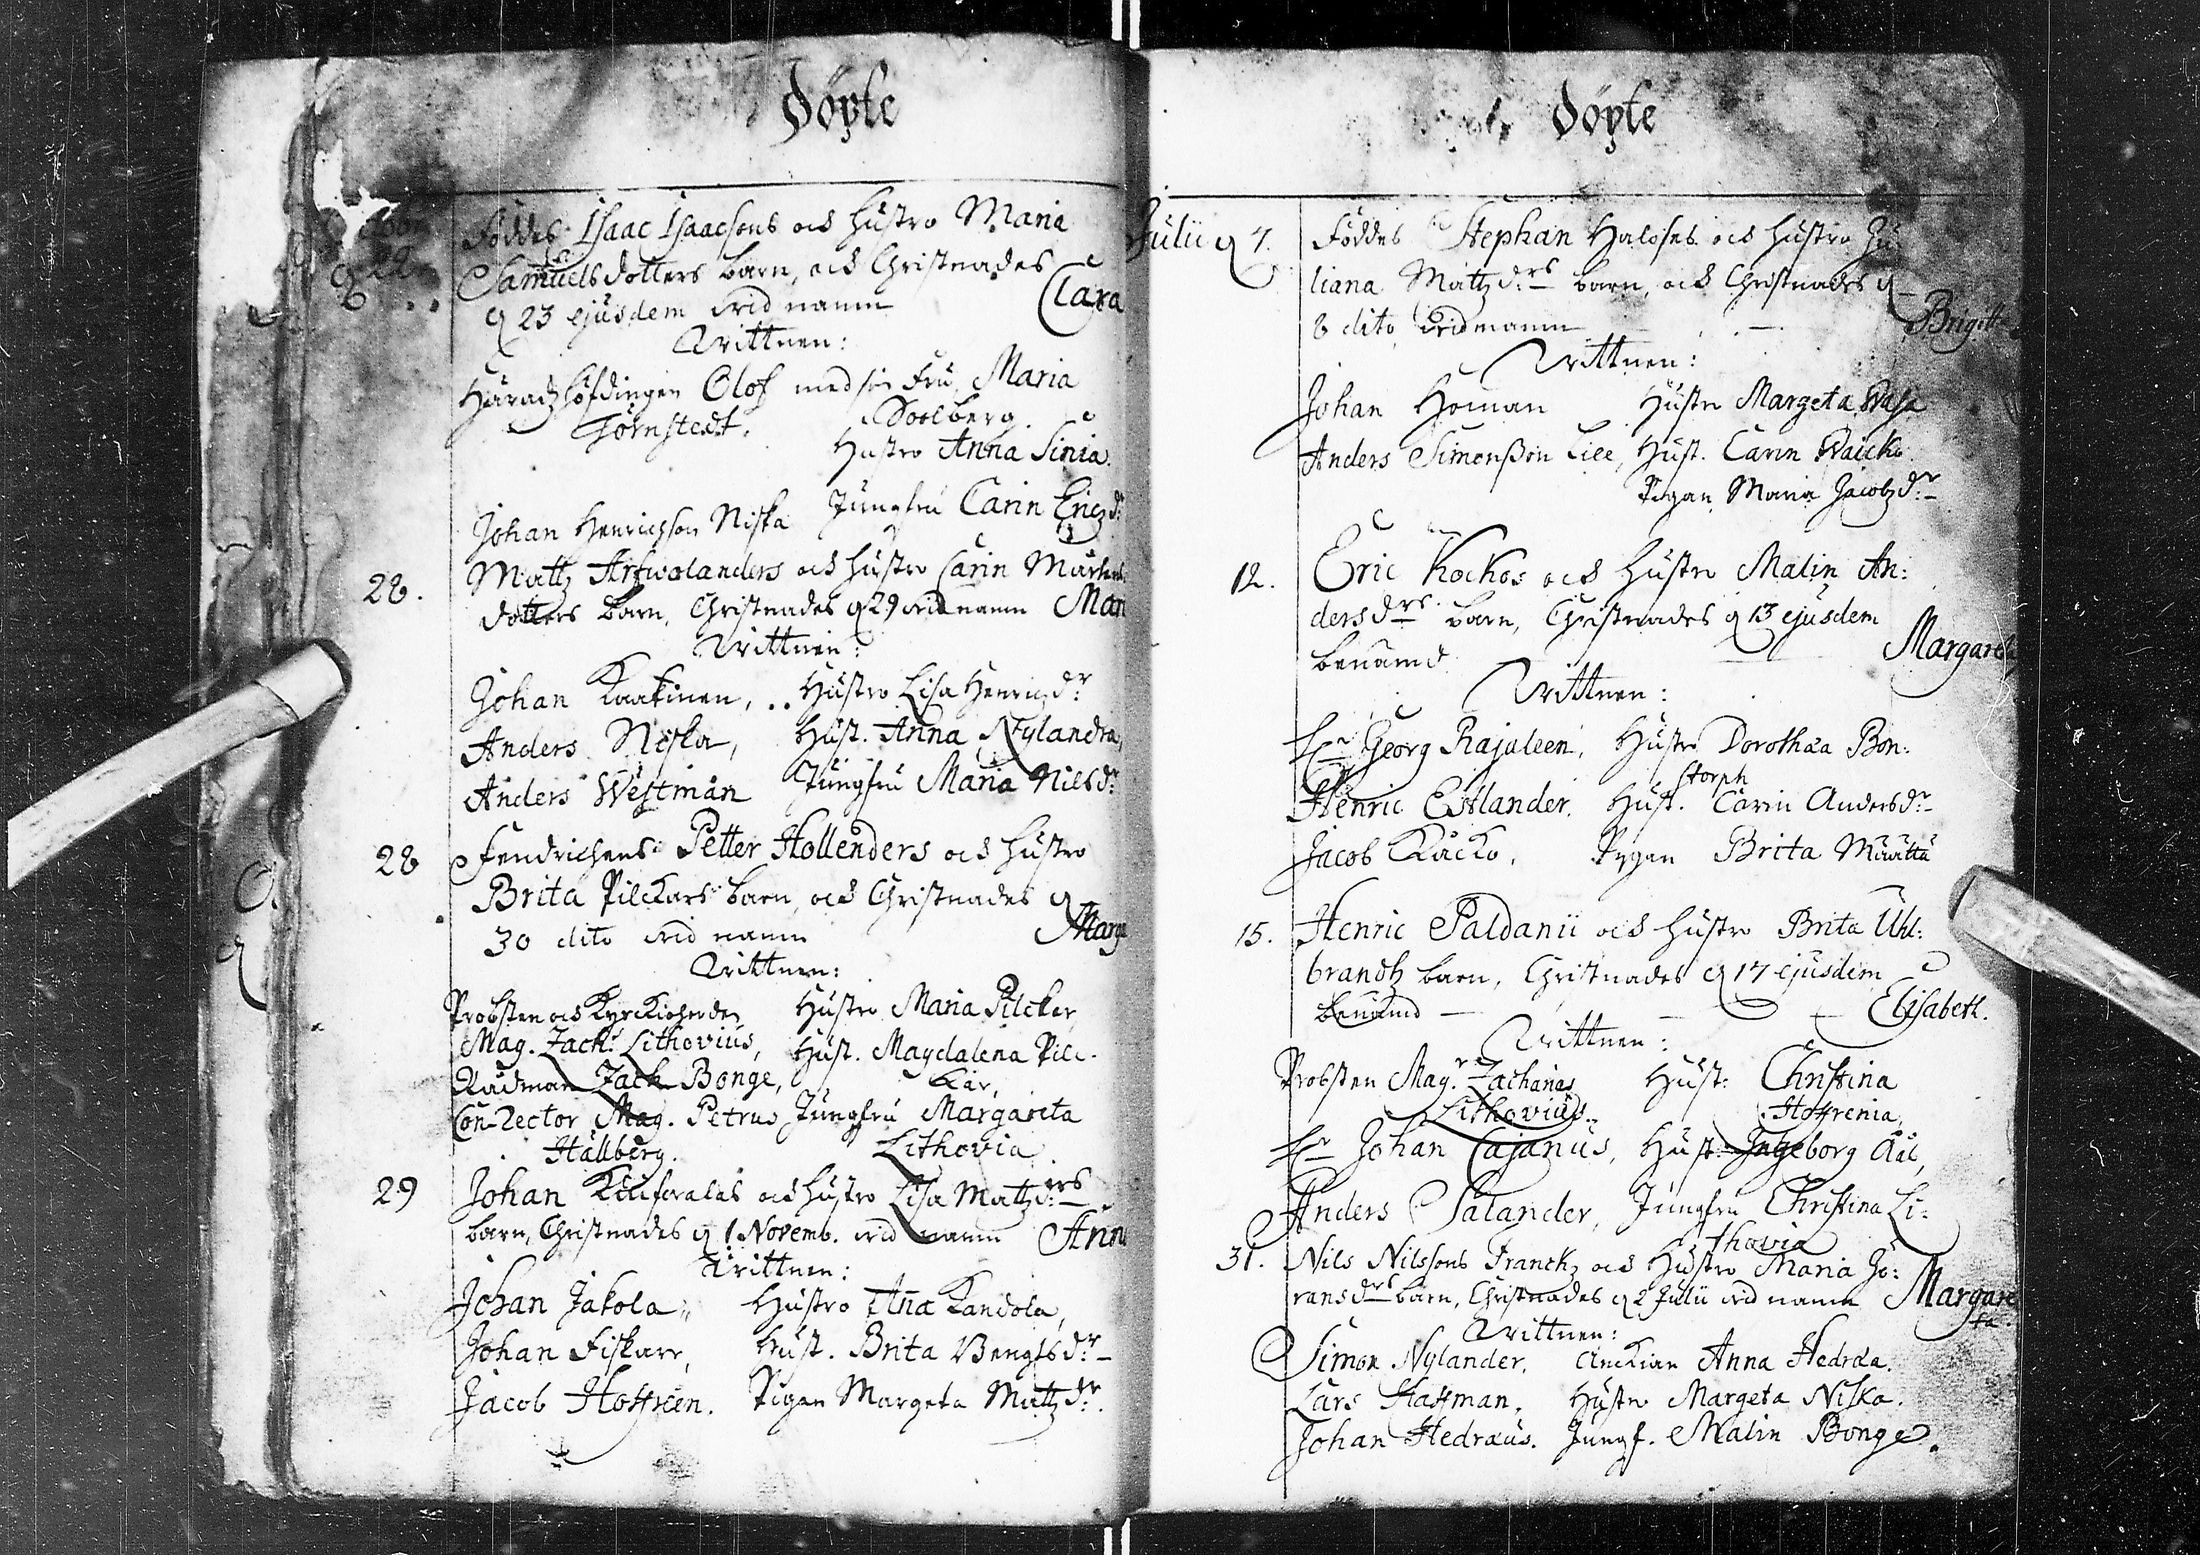 Döpte
Föddes Isaac Isaacsons och hustro Maria
22
Samuelsdotters barn, och Christnades
d 23 ejusdem wid namn Clara
Wittnen:
Häradzhöfdingen Olof med sin Fru Maria
Törnstedt. Soolberg.
Hustro Anna Sinia.
Johan Henrichson Niska Jungfru Carin Ericzdr
28. Mattz Artwolanders och hustro Carin Mårtens
dotters barn, Christnades d 29 wid namn
Wittnen:
Johan Kaakinen, Hustro Lisa Henricsdr
Anders Niska, Hust. Anna Nylandra,
Anders Westman Jungfru Maria Nilsdr
28 Fendrichens Petter Hollenders och hustro
Brita Pilckars barn, och Christnades d
30 dito wid namn Marga
Wittnen:
Probsten och Kyrckioherden Hustro Maria Pilckar,
Mag. Zach. Lithovius, Hust. Magdalena Pilc-
Rådman Zach Bonge, kar,
Con-Rector Mag. Petrus Jungfru Margareta
Hällberg. Lithovia
29 Johan och hustro Lisa Mattzdrs
barn, Christnades d 1 Novemb. wid namn Anna
Wittnen:
Johan Jakola, Hustro Anna Kandola,
Johan Fiskare, Hust. Brita Bengtsdr
Jacob Hoffreen. Pigan Margeta Mattzdr.
Döpte
Julii d 7. Föddes Stephan Haloses och hustro Ju
liana Mattzdrs barn, och Christnades d
8 dito wid namn Brigitta
Wittnen:
Johan Homan Hustro Margeta Wasa
Anders Simonßon Lill, Hust. Carin Waicko
Pigan Maria Jacobzdr
12. Eric Kockos och hustro Malin An:
dersdrs barn, Christnades d 13 ejusdem
benämd Margareta
Wittnen:
Hr Georg Rajaleen, Hustro Dorothæa Bon:
storph
Henric Estlander, Hust. Carin Andersdr
Jacob Kåcko, Pygan Brita Määttä
15. Henric Paldanii och hustro Brita Uhl:
brandtz barn, Christnades d 17 ejusdem
benämd Elisabeth.
Wittnen:
Probsten Magr Zacharias Hust: Christina
Lithovius, Hoffrenia,
Hr Johan Cajanus, Hust: Ingeborg Aal,
Anders Salander, Jungfru Christina Li-
thovia
31. Nils Nilssons Franck och Hustro Maria Jö:
ransdrs barn, Christnades d 2 Julii wid namn Margare
ta.
Wittnen:
Simon Nylander, Enckian Anna Hedræa.
Lars Haffman, Hustro Margeta Niska.
Johan Hedræus. Jungf. Malin Bonge.